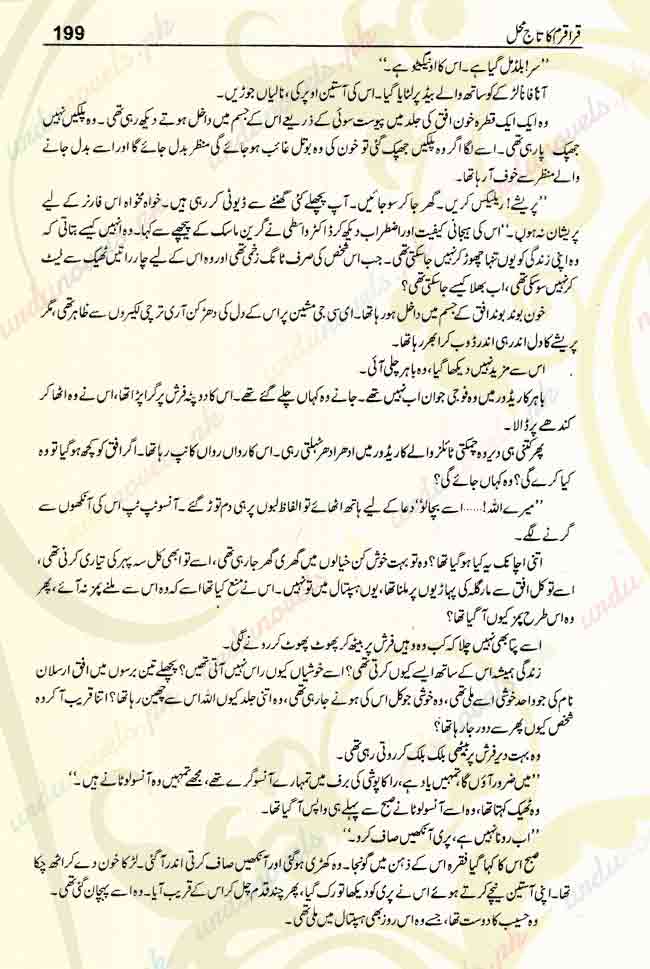 قراقرم کا تاج محل 199
”سر! بلڈ مل گیا ہے۔ اس کا او نیگیٹو ہے۔“
آناً فاناً لڑکے کو ساتھ والے بیڈ پر لٹایا گیا۔ اس کی آستین اوپر کی، نالیاں جوڑیں۔
وہ ایک ایک قطرہ خون افق کی جلد میں پیوست سوئی کے ذریعے اس کے جسم میں داخل ہوتے دیکھ رہی تھی۔ وہ پلکیں نہیں
جھپک پا رہی تھی۔ اسے لگا اگر وہ پلکیں جھپک گئی تو خون کی وہ بوتل غائب ہو جائے گی منظر بدل جائے گا اور اسے بدل جانے
والے منظر سے خوف آ رہا تھا۔
”پریشے! ریلیکس کریں۔ گھر جا کر سو جائیں۔ آپ پچھلے کئی گھنٹے سے ڈیوٹی کر رہی ہیں۔ خواہ مخواہ اس فارنر کے لیے
پریشان نہ ہوں۔“ اس کی ہیجانی کیفیت اور اضطراب دیکھ کر ڈاکٹر واسطی نے گرین ماسک کے پیچھے سے کہا۔ وہ انہیں کیسے بتاتی کہ
وہ اپنی زندگی کو یوں تنہا چھوڑ کر نہیں جا سکتی تھی۔ جب اس شخص کی صرف ٹانگ زخمی تھی اور وہ اس کے لیے چار راتیں ٹھیک سے لیٹ
کر نہیں سو سکی تھی، اب بھلا کیسے جا سکتی تھی؟
خون بوند بوند افق کے جسم میں داخل ہو رہا تھا۔ ای سی جی مشین پر اس کے دل کی دھڑکن آری ترچھی لکیروں سے ظاہر تھی، مگر
پریشے کا دل اندر ہی اندر ڈوب کر ابھر رہا تھا۔
اس سے مزید نہیں دیکھا گیا، وہ باہر چلی آئی۔
باہر کاریڈور میں وہ فوجی جوان اب نہیں تھے۔ جانے وہ کہاں چلے گئے تھے۔ اس کا دوپٹہ فرش پر گرا پڑا تھا، اس نے وہ اٹھا کر
کندھے پر ڈالا۔
پھر کتنی ہی دیر وہ چمکتی ٹائلز والے کاریڈور میں ادھر ادھر ٹہلتی رہی۔ اس کا رواں رواں کانپ رہا تھا۔ اگر افق کو کچھ ہو گیا تو وہ
کیا کرے گی؟ وہ کہاں جائے گی؟
”میرے اللہ!......اسے بچا لو“ دعا کے لیے ہاتھ اٹھائے تو الفاظ لبوں پر ہی دم توڑ گئے۔ آنسو ٹپ ٹپ اس کی آنکھوں سے
گرنے لگے۔
اتنی اچانک یہ کیا ہو گیا تھا؟ وہ تو بہت خوش کن خیالوں میں گھری گھر جا رہی تھی، اسے تو ابھی کل سہ پہر کی تیاری کرنی تھی،
اسے تو کل افق سے مارگلہ کی پہاڑیوں پر ملنا تھا، یوں ہسپتال میں تو نہیں۔ اس نے منع کیا تھا اسے کہ وہ اس سے ملنے پمز نہ آئے، پھر
وہ اس طرح پمز کیوں آ گیا تھا؟
اسے پتا بھی نہیں چلا کہ کب وہ وہیں فرش پر بیٹھ کر پھوٹ پھوٹ کر رونے لگی۔
زندگی ہمیشہ اس کے ساتھ ایسے کیوں کرتی تھی؟ اسے خوشیاں کیوں راس نہیں آتی تھیں؟ پچھلے تین برسوں میں افق ارسلان
نام کی جو واحد خوشی اسے ملی تھی، وہ خوشی جو کل اس کی ہونے جا رہی تھی، وہ اتنی جلد کیوں اللہ اس سے چھین رہا تھا؟ اتنا قریب آ کر وہ
شخص کیوں پھر سے دور جا رہا تھا؟
وہ بہت دیر فرش پر بیٹھی بلک بلک کر روتی رہی تھی۔
”میں ضرور آؤں گا تمہیں یاد ہے، راکاپوشی کی برف میں تمہارے آنسو گرے تھے، مجھے تمہیں وہ آنسو لوٹانے ہیں۔“
وہ ٹھیک کہتا تھا، وہ اسے آنسو لوٹانے صبح سے پہلے ہی واپس آ گیا تھا۔
”اب رونا نہیں ہے، پری آنکھیں صاف کرو۔“
صبح اس کا کہا گیا فقرہ اس کے ذہن میں گونجا۔ وہ کھڑی ہو گئی اور آنکھیں صاف کرتی اندر آ گئی۔ لڑکا خون دے کر اٹھ چکا
تھا۔ اپنی آستین نیچے کرتے ہوئے اس نے پری کو دیکھا تو رک گیا، پھر چند قدم چل کر اس کے قریب آیا۔ وہ اسے پہچان گئی تھی۔
وہ حسیب کا دوست تھا، جسے وہ اس روز بھی ہسپتال میں ملی تھی۔